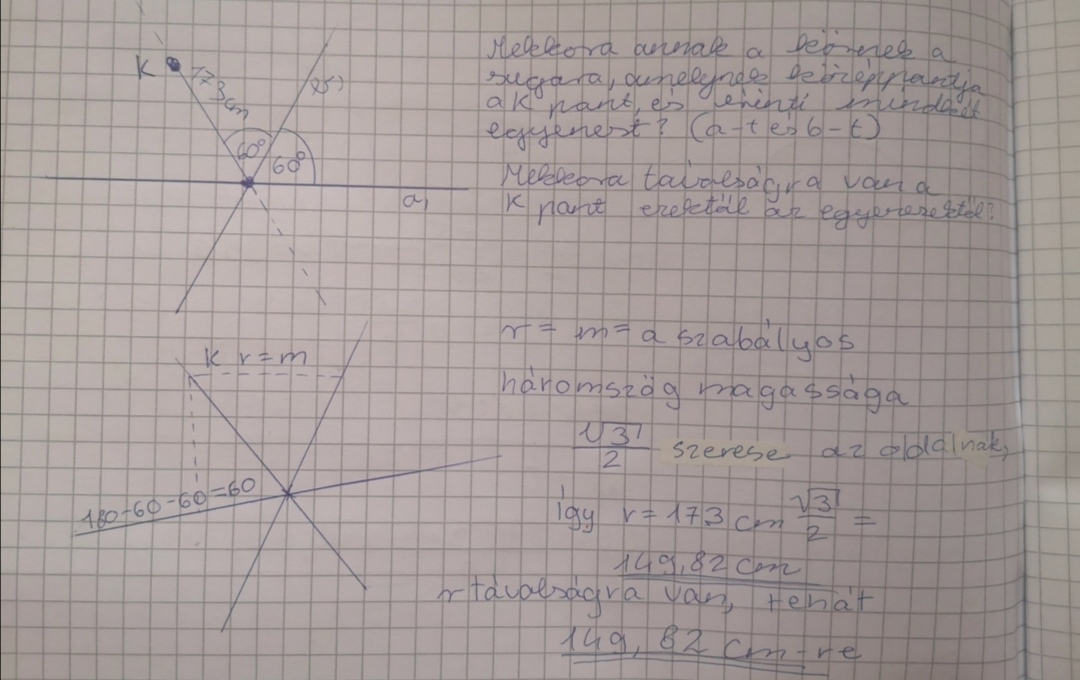 K 173 cm
b)
60° 60°
a)
Mekkora annak a körnek a
sugara, amelynek középpontja
a K pont, és érinti mindkét
egyenest? (a-t és b-t)
Mekkora távolságra van a
K pont ezektől az egyenesektől?
K r = m
180-60-60=60
r = m = a szabályos
háromszög magassága
√3/2 szerese az oldalnak,
Így r = 173 cm √3/2 =
149,82 cm
r távolságra van, tehát
149,82 cm-re